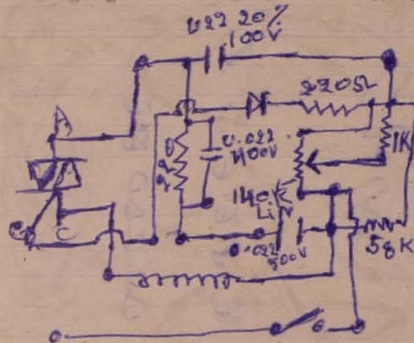 022 20%
100V
220Ω
A
1K
220
0.022
400V
140K
Li
G
C
0.022
500V
58K